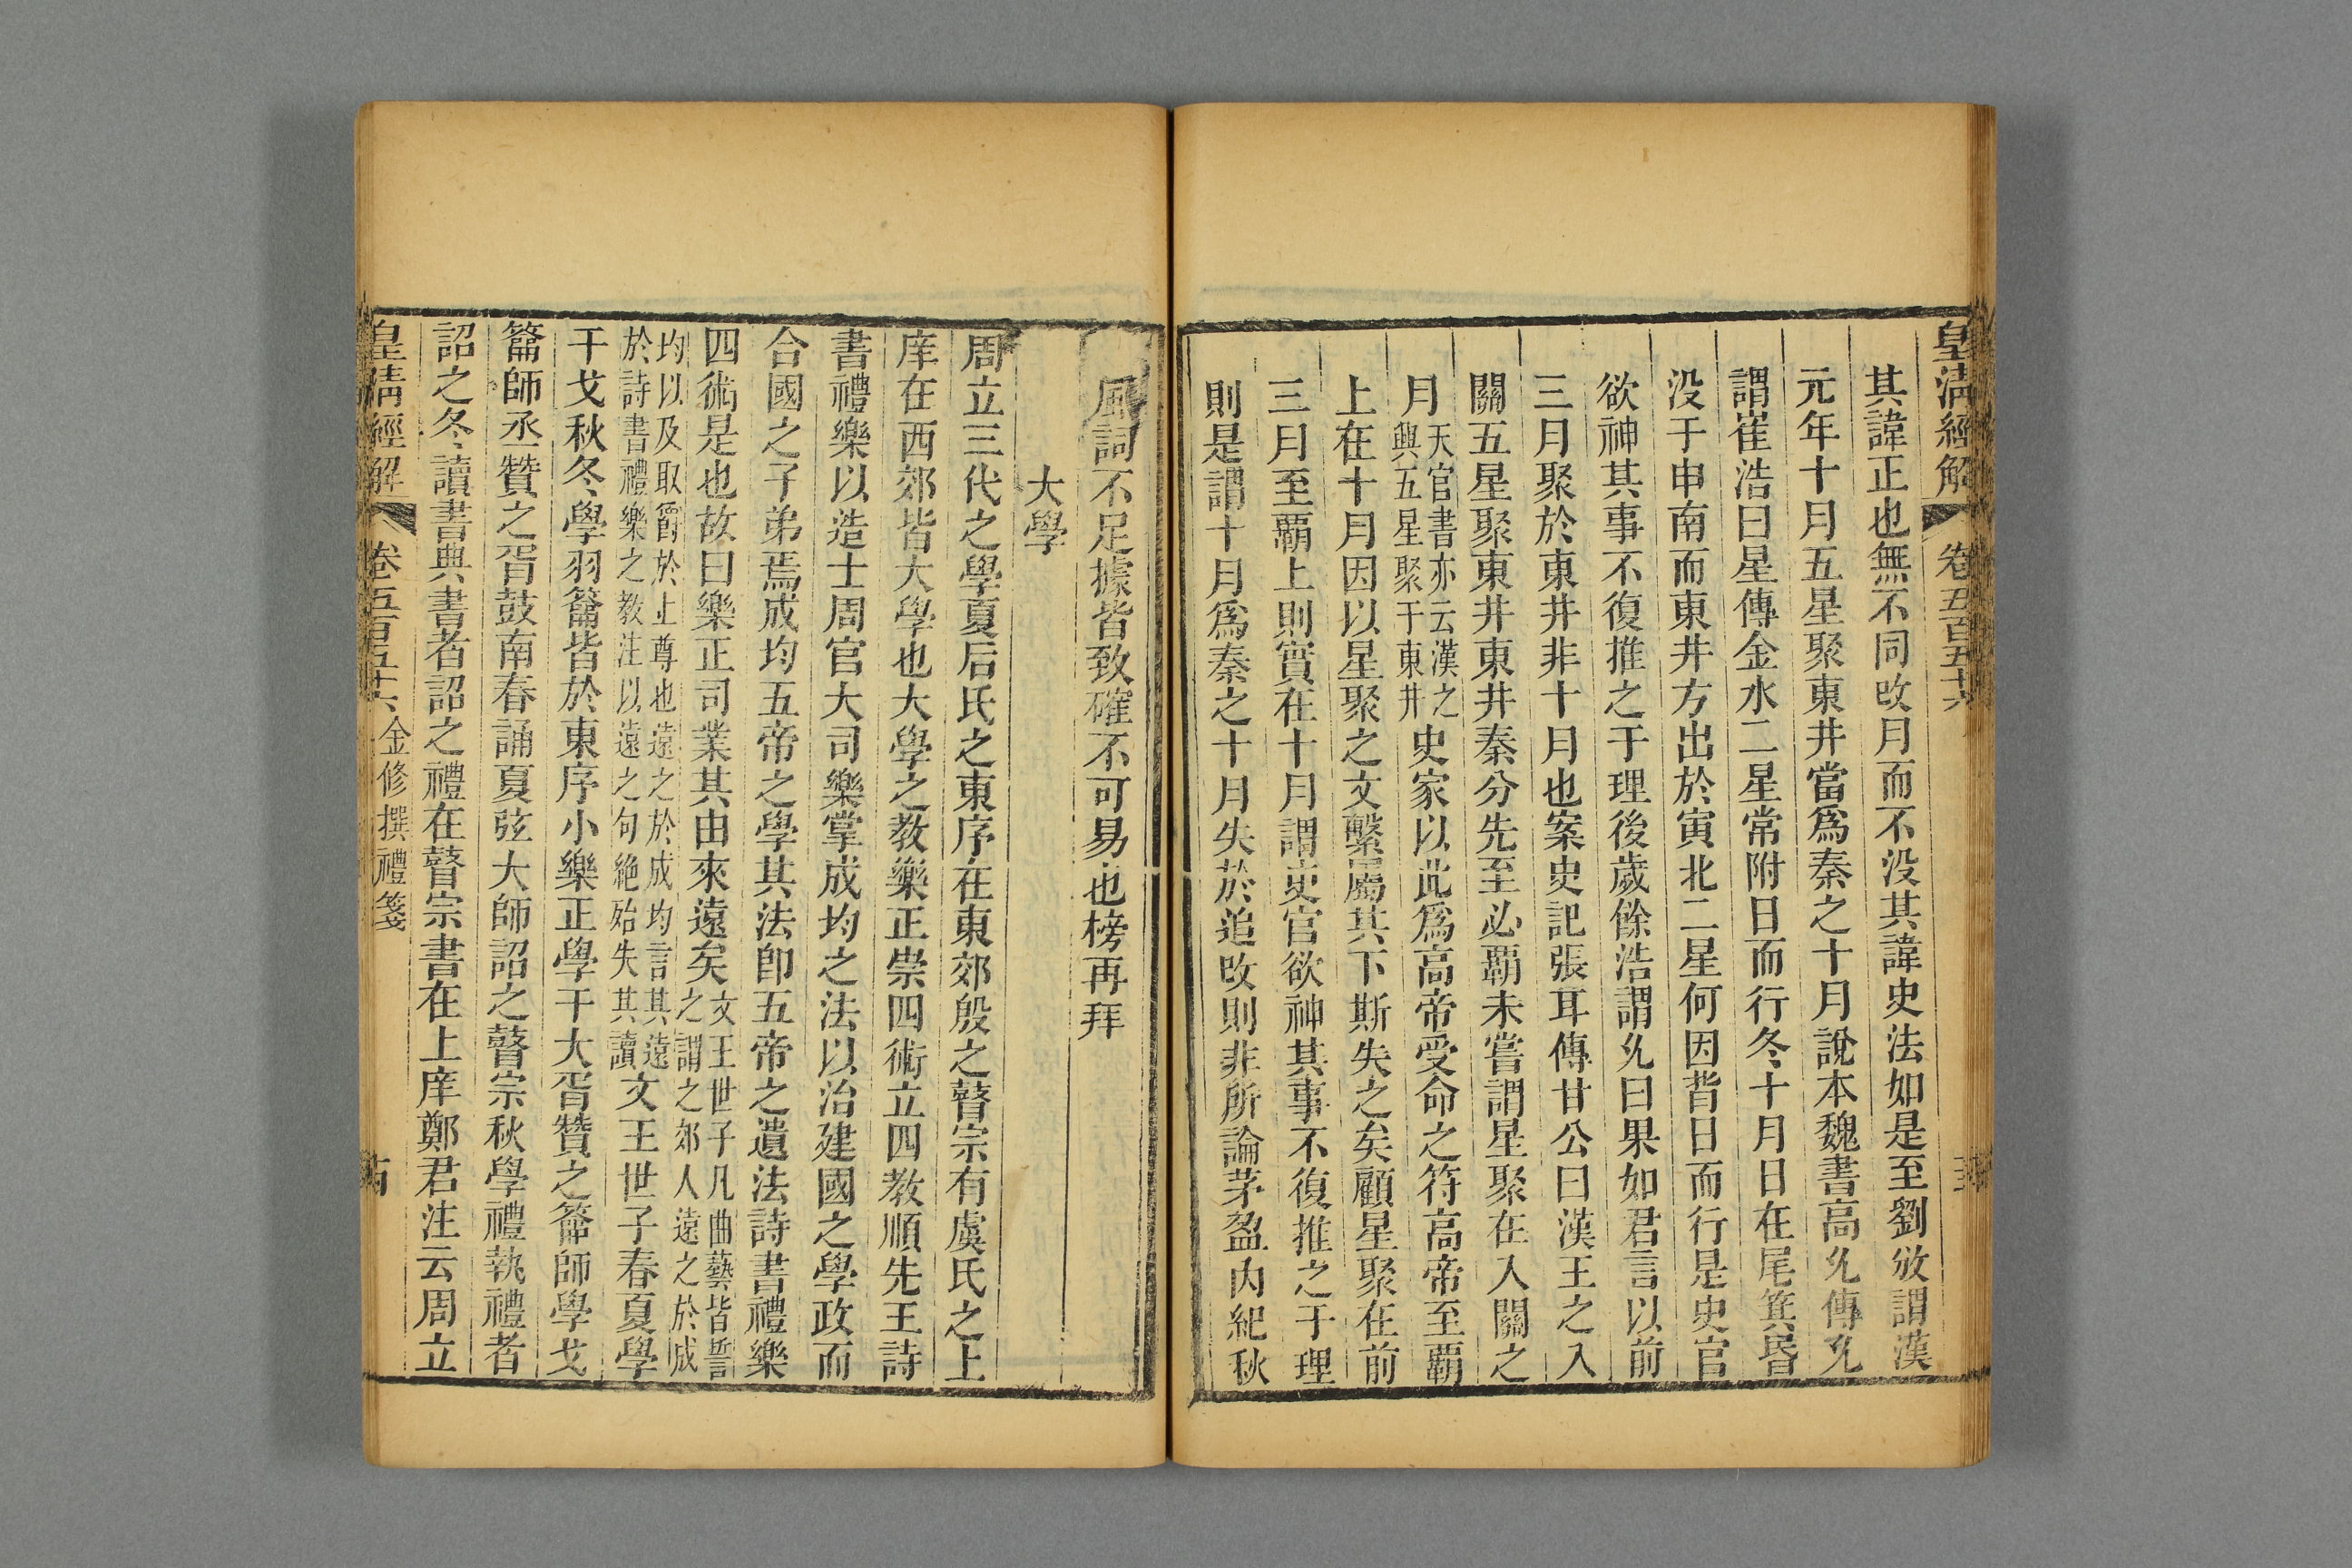 皇清經解 卷五百五十六
其諱正也無不同改月而不没其諱史法如是至劉攽謂漢
元年十月五星聚東井當爲秦之十月說本魏書高允傳允
謂崔浩曰星傳金水二星常附日而行冬十月日在尾箕昬
没于申南而東井方出於寅北二星何因背日而行是史官
欲神其事不復推之于理後歲餘浩謂允曰果如君言以前
三月聚於東井非十月也案史記張耳傳甘公曰漢王之入
關五星聚東井東井秦分先至必覇未嘗謂星聚在入關之
月天官書亦云漢之興五星聚于東井史家以此爲高帝受命之符高帝至覇
上在十月因以星聚之文繫屬其下斯失之矣顧星聚在前
三月至覇上則實在十月謂史官欲神其事不復推之于理
則是謂十月爲秦之十月失於追改則非所論茅盈内紀秋
風詞不足據皆致確不可易也榜再拜
大學
周立三代之學夏后氏之東序在東郊殷之瞽宗有虞氏之上
庠在西郊皆大學也大學之教樂正崇四術立四教順先王詩
書禮樂以造士周官大司樂掌成均之法以治建國之學政而
合國之子弟焉成均五帝之學其法卽五帝之遺法詩書禮樂
四術是也故曰樂正司業其由來遠矣文王世子凡曲藝皆誓之謂之郊人遠之於成
均以及取爵於上尊也遠之於成均言其遠於詩書禮樂之教注以遠之句絶殆失其讀文王世子春夏學
干戈秋冬學羽籥皆於東序小樂正學干大胥贊之籥師學戈
籥師丞贊之胥鼓南春誦夏弦大師詔之瞽宗秋學禮執禮者
詔之冬讀書典書者詔之禮在瞽宗書在上庠鄭君注云周立
皇清經解 卷五百五十六 金修撰禮箋